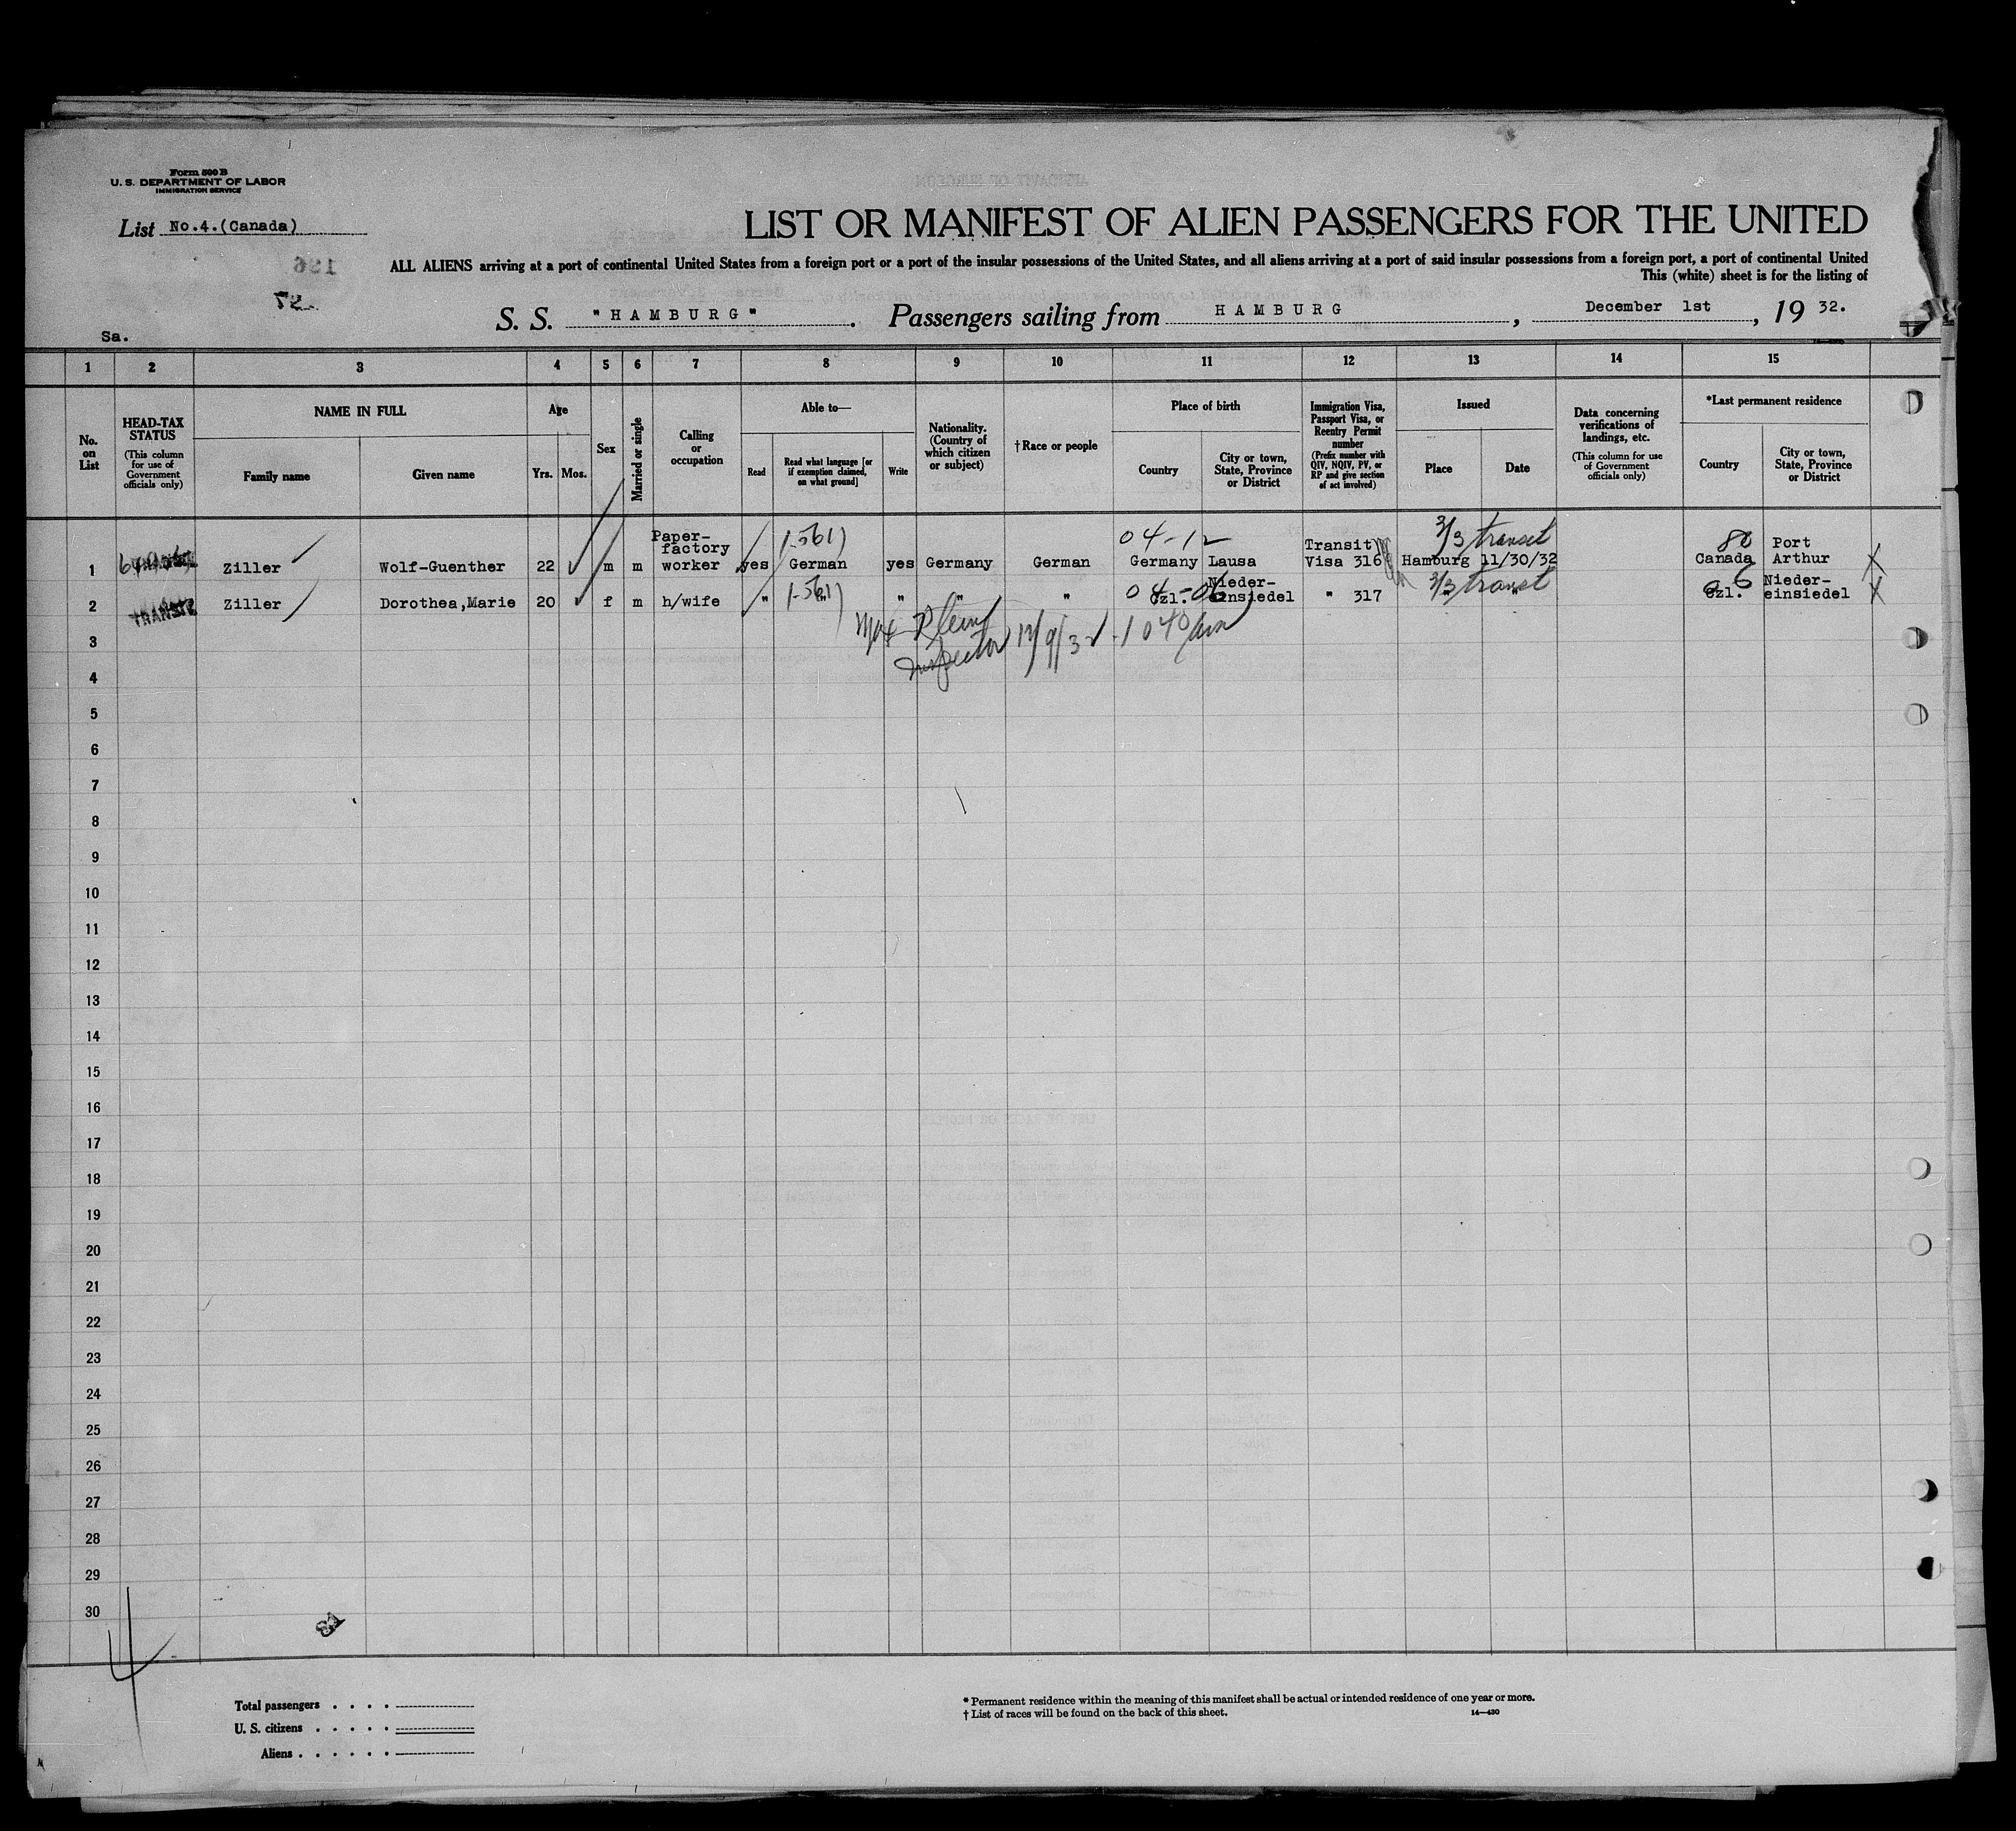 Form 500 B
U. S. DEPARTMENT OF LABOR
IMMIGRATION SERVICE
List No.4.(Canada)
LIST OR MANIFEST OF ALIEN PASSENGERS FOR THE UNITED
196
ALL ALIENS arriving at a port of continental United States from a foreign port or a port of the insular possessions of the United States, and all aliens arriving at a port of said insular possessions from a foreign port, a port of continental United
This (white) sheet is for the listing of
S. S. "HAMBURG". Passengers sailing from HAMBURG, December 1st, 19 32.
Sa.
1 2 3 4 5 6 7 8 9 10 11 12 13 14 15
No. on List
HEAD-TAX STATUS (This column for use of Government officials only)
NAME IN FULL
Family name
Given name
Age
Yrs. Mos.
Sex
Married or single
Calling or occupation
Able to—
Read
Read what language [or if exemption claimed, on what ground]
Write
Nationality. (Country of which citizen or subject)
†Race or people
Place of birth
Country
City or town, State, Province or District
Immigration Visa, Passport Visa, or Reentry Permit number (Prefix number with QIV, NQIV, PV, or RP and give section of act involved)
Issued
Place
Date
Data concerning verifications of landings, etc. (This column for use of Government officials only)
*Last permanent residence
Country
City or town, State, Province or District
04-12 3/3 transit
1 Ziller Wolf-Guenther 22 m m Paper-factory worker yes German yes Germany German Germany Lausa Transit Visa 316 Hamburg 11/30/32 Canada Port Arthur
04-06 3/3 transit
2 TRANSIT Ziller Dorothea,Marie 20 f m h/wife " " " " " Czl. Nieder-einsiedel " 317 " " Czl. Nieder-einsiedel
Inspector 12/9/32 1040 am
3
4
5
6
7
8
9
10
11
12
13
14
15
16
17
18
19
20
21
22
23
24
25
26
27
28
29
30
4
Total passengers . . . .
U. S. citizens . . . . .
Aliens . . . . . .
* Permanent residence within the meaning of this manifest shall be actual or intended residence of one year or more.
† List of races will be found on the back of this sheet.
14—430